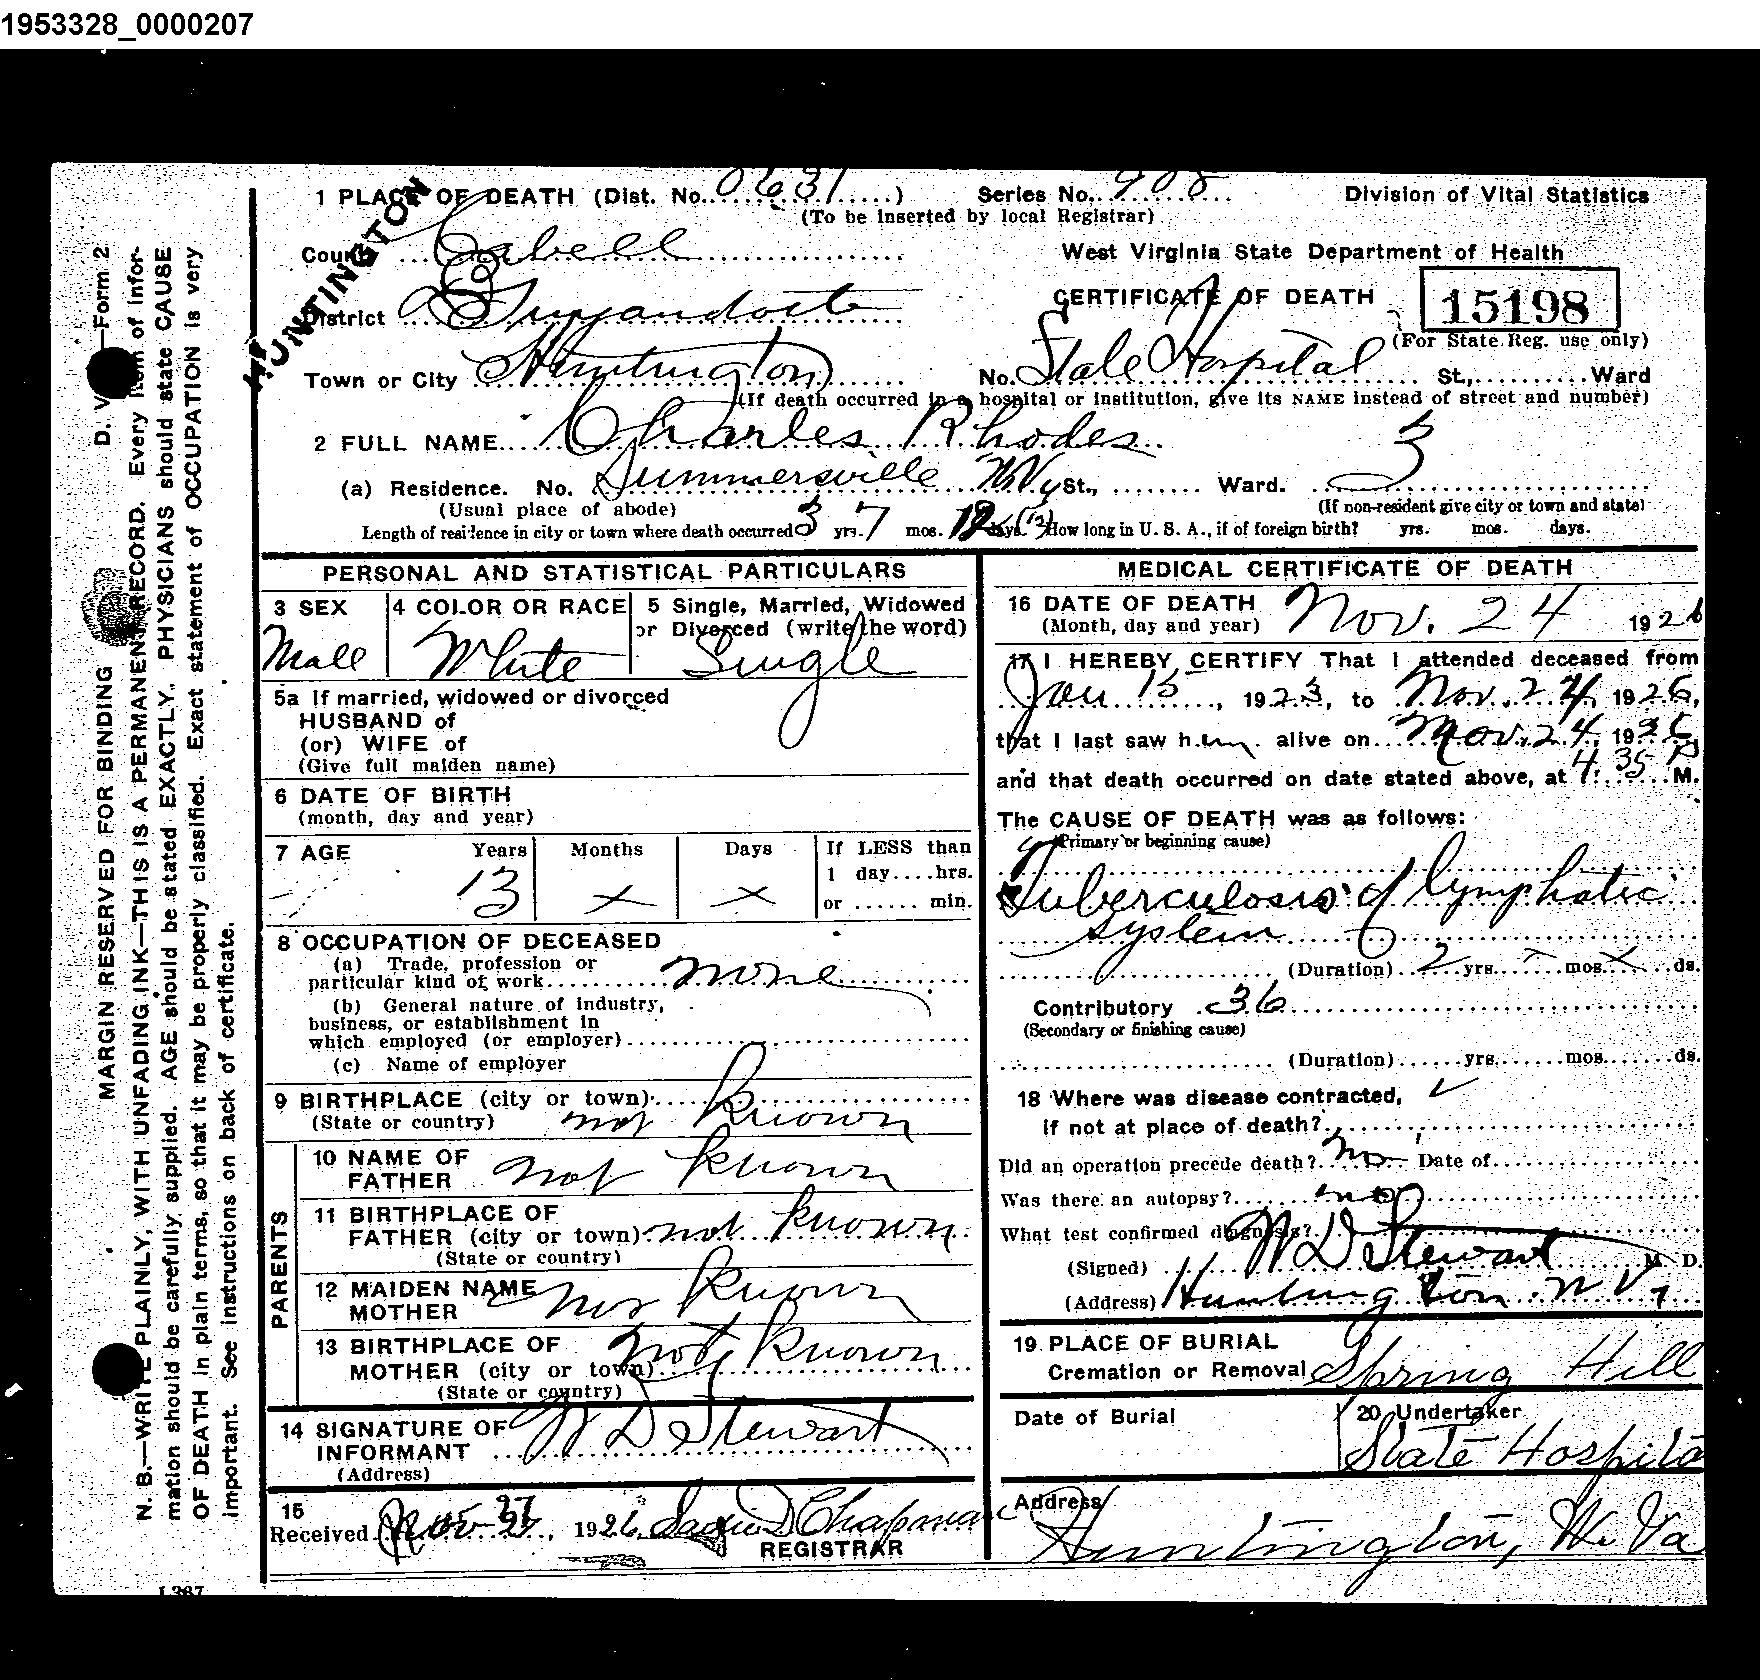 1953328_0000207
1 PLACE OF DEATH (Dist. No. 0631) Series No. 908 Division of Vital Statistics
(To be inserted by local Registrar)
HUNTINGTON
County Cabell West Virginia State Department of Health
District Guyandotte CERTIFICATE OF DEATH 15198
(For State Reg. use only)
Town or City Huntington No. State Hospital St., Ward
(If death occurred in a hospital or institution, give its NAME instead of street and number)
2 FULL NAME Charles Rhodes 3
(a) Residence. No. Summersville W Va St., Ward.
(Usual place of abode) (If non-resident give city or town and state)
Length of residence in city or town where death occurred 3 yrs. 7 mos. days. How long in U. S. A., if of foreign birth? yrs. mos. days.
PERSONAL AND STATISTICAL PARTICULARS
3 SEX 4 COLOR OR RACE 5 Single, Married, Widowed
or Divorced (write the word)
Male White Single
5a If married, widowed or divorced
HUSBAND of
(or) WIFE of
(Give full maiden name)
6 DATE OF BIRTH
(month, day and year)
7 AGE Years Months Days If LESS than
1 day....hrs.
13 x x or ...... min.
8 OCCUPATION OF DECEASED
(a) Trade, profession or
particular kind of work none
(b) General nature of industry,
business, or establishment in
which employed (or employer)
(c) Name of employer
9 BIRTHPLACE (city or town)
(State or country) not known
PARENTS
10 NAME OF
FATHER not known
11 BIRTHPLACE OF
FATHER (city or town) not known
(State or country)
12 MAIDEN NAME
MOTHER not known
13 BIRTHPLACE OF
MOTHER (city or town) not known
(State or country)
14 SIGNATURE OF
INFORMANT W D Stewart
(Address)
15
Received Nov 27, 1926 Chapman
REGISTRAR
MEDICAL CERTIFICATE OF DEATH
16 DATE OF DEATH Nov. 24 1926
(Month, day and year)
17 I HEREBY CERTIFY That I attended deceased from
Jan 15, 1923, to Nov. 24, 1926,
that I last saw him alive on Nov. 24, 1926,
and that death occurred on date stated above, at 4:35 P M.
The CAUSE OF DEATH was as follows:
(Primary or beginning cause)
Tuberculosis of lymphatic
system
(Duration) 2 yrs. mos. x ds.
Contributory 36
(Secondary or finishing cause)
(Duration) yrs. mos. ds.
18 Where was disease contracted,
if not at place of death?
Did an operation precede death? no Date of
Was there an autopsy? no
What test confirmed diagnosis?
(Signed) W D Stewart M. D.
(Address) Huntington W Va
19 PLACE OF BURIAL
Cremation or Removal Spring Hill
Date of Burial 20 Undertaker
State Hospital
Address
Huntington, W. Va
MARGIN RESERVED FOR BINDING D. V. —Form 2
N. B.—WRITE PLAINLY, WITH UNFADING INK—THIS IS A PERMANENT RECORD. Every item of infor-
mation should be carefully supplied. AGE should be stated EXACTLY. PHYSICIANS should state CAUSE
OF DEATH in plain terms, so that it may be properly classified. Exact statement of OCCUPATION is very
important. See instructions on back of certificate.